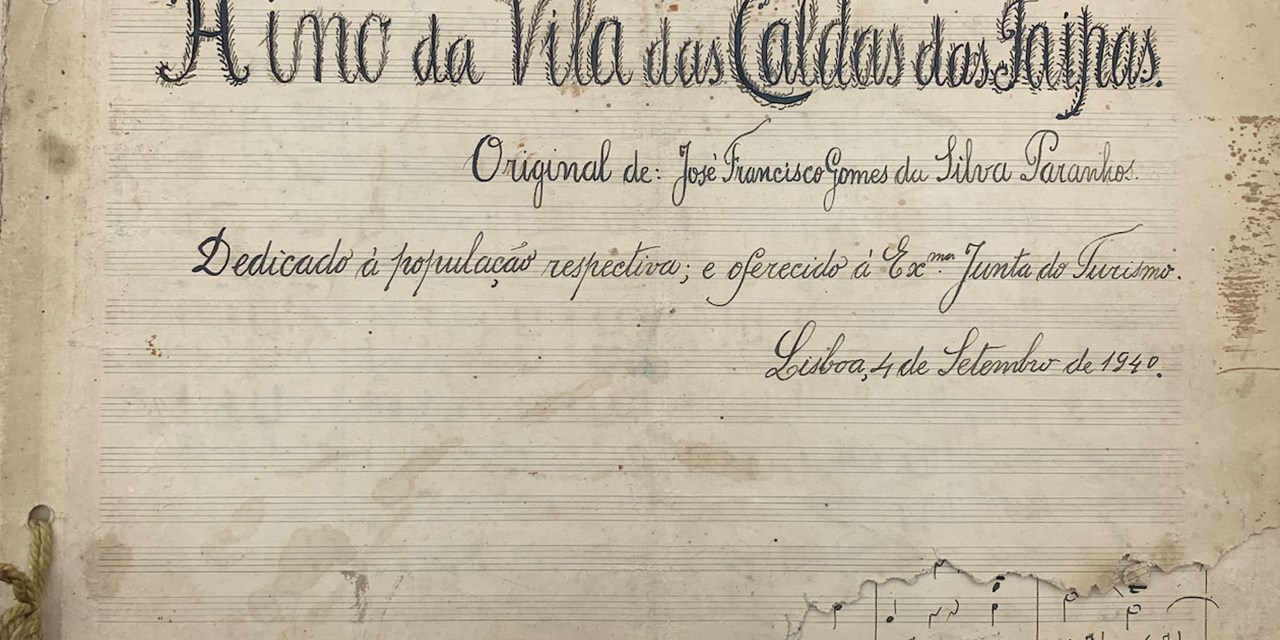 Hino da Vila das Caldas das Taipas.
Original de: José Francisco Gomes da Silva Paranhos.
Dedicado à população respectiva; e oferecido á Exma. Junta do Turismo.
Lisboa, 4 de Setembro de 1940.